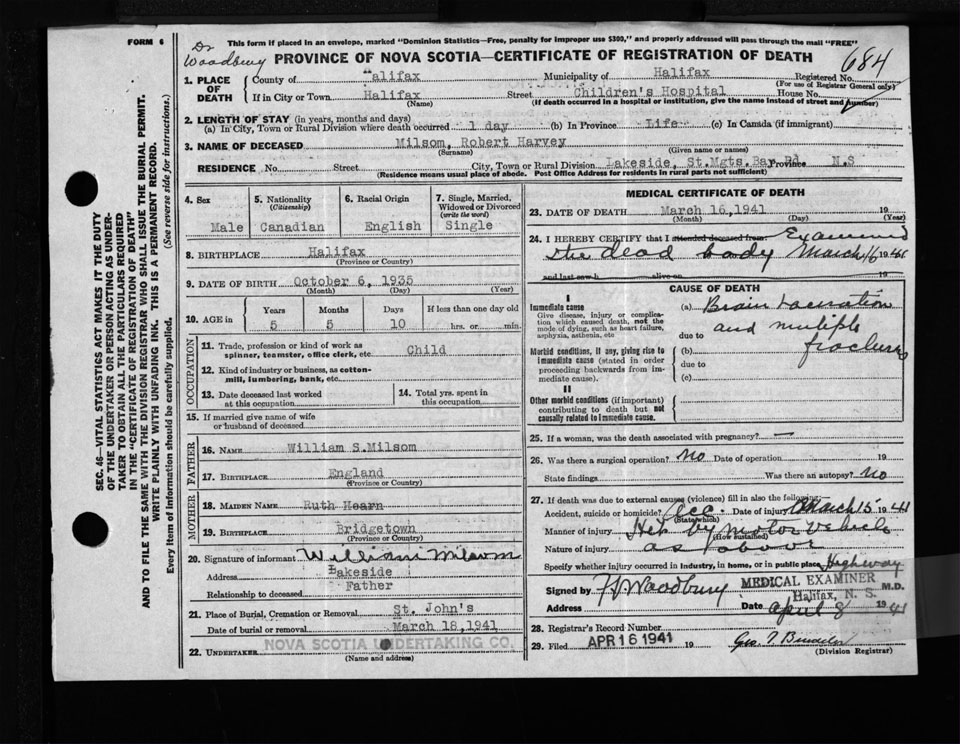 FORM 6
This form if placed in an envelope, marked "Dominion Statistics—Free, penalty for improper use $300," and properly addressed will pass through the mail "FREE"
Dr Woodbury
PROVINCE OF NOVA SCOTIA—CERTIFICATE OF REGISTRATION OF DEATH
684
1. PLACE OF DEATH
County of Halifax Municipality of Halifax Registered No.
(For use of Registrar General only)
If in City or Town Halifax Street Children's Hospital House No.
(Name) (If death occurred in a hospital or institution, give the name instead of street and number)
2. LENGTH OF STAY (in years, months and days)
(a) In City, Town or Rural Division where death occurred 1 day (b) In Province Life (c) In Canada (if immigrant)
3. NAME OF DECEASED Milsom, Robert Harvey
(Surname) (Given name or names)
RESIDENCE No. Street City, Town or Rural Division Lakeside, St.Mgts.Bay Rd Province N.S
(Residence means usual place of abode. Post Office Address for residents in rural parts not sufficient)
4. Sex
Male
5. Nationality (Citizenship)
Canadian
6. Racial Origin
English
7. Single, Married, Widowed or Divorced (write the word)
Single
8. BIRTHPLACE Halifax
(Province or Country)
9. DATE OF BIRTH October 6, 1935
(Month) (Day) (Year)
10. AGE in Years Months Days If less than one day old
5 5 10 hrs. or min.
OCCUPATION
11. Trade, profession or kind of work as spinner, teamster, office clerk, etc. Child
12. Kind of industry or business, as cotton-mill, lumbering, bank, etc.
13. Date deceased last worked at this occupation
14. Total yrs. spent in this occupation
15. If married give name of wife or husband of deceased
FATHER
16. NAME William S.Milsom
17. BIRTHPLACE England
(Province or Country)
MOTHER
18. MAIDEN NAME Ruth Hearn
19. BIRTHPLACE Bridgetown
(Province or Country)
20. Signature of informant William Milsom
Address Lakeside
Relationship to deceased Father
21. Place of Burial, Cremation or Removal St. John's
Date of burial or removal March 18,1941
22. UNDERTAKER NOVA SCOTIA UNDERTAKING CO.
(Name and address)
MEDICAL CERTIFICATE OF DEATH
23. DATE OF DEATH March 16,1941 19
(Month) (Day) (Year)
24. I HEREBY CERTIFY that I attended deceased from Examined
the dead body March 16 1941
and last saw h alive on 19
CAUSE OF DEATH
I
Immediate cause
Give disease, injury or complication which caused death, not the mode of dying, such as heart failure, asphyxia, asthenia, etc
(a) Brain Laceration
and multiple
due to
fractures
Morbid conditions, if any, giving rise to immediate cause (stated in order proceeding backwards from immediate cause).
(b)
due to
(c)
II
Other morbid conditions (if important) contributing to death but not causally related to immediate cause.
25. If a woman, was the death associated with pregnancy? —
26. Was there a surgical operation? No Date of operation 19
State findings Was there an autopsy? no
27. If death was due to external causes (violence) fill in also the following:—
Accident, suicide or homicide? Acc. Date of injury March 15 1941
(State which)
Manner of injury Hit by motor Vehicle
(How sustained)
Nature of injury as above
Specify whether injury occurred in industry, in home, or in public place Highway
Signed by F.V. Woodbury MEDICAL EXAMINER M.D.
Halifax, N. S.
Address Date April 8 1941
28. Registrar's Record Number
29. Filed APR 16 1941 19
(Division Registrar)
SEC. 46—VITAL STATISTICS ACT MAKES IT THE DUTY
OF THE UNDERTAKER OR PERSON ACTING AS UNDER-
TAKER TO OBTAIN ALL THE PARTICULARS REQUIRED
IN THE "CERTIFICATE OF REGISTRATION OF DEATH"
AND TO FILE THE SAME WITH THE DIVISION REGISTRAR WHO SHALL ISSUE THE BURIAL PERMIT.
WRITE PLAINLY WITH UNFADING INK. THIS IS A PERMANENT RECORD.
Every item of information should be carefully supplied. (See reverse side for instructions.)